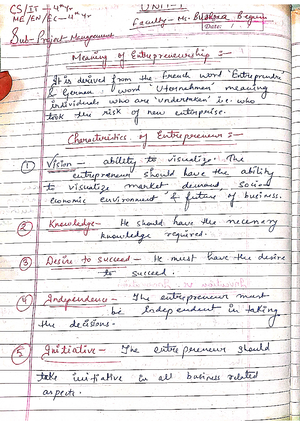 CS/IT - 4th Yr
ME/EN/EC - 4th Yr
UNIT-1
Faculty - Ms. Bushra Begum
Date: 1
Sub- Project Management
Meaning of Entrepreneurship :-
It is derived from the French word 'Entreprendre'
& German word 'Uternehmen' meaning
individuals who are 'undertaken' i.e. who
took the risk of new enterprise.
Characteristics of Entrepreneur :-
1 Vision - ability to visualize. The
entrepreneur should have the ability
to visualize market demand, socio
economic environment & future of business.
2 Knowledge - He should have the necessary
knowledge required.
3 Desire to succeed - He must have the desire
to succeed.
4 Independence - The entrepreneur must
be independent in taking
the decisions.
5 Initiative - The entrepreneur should
take initiative in all business related
aspects.